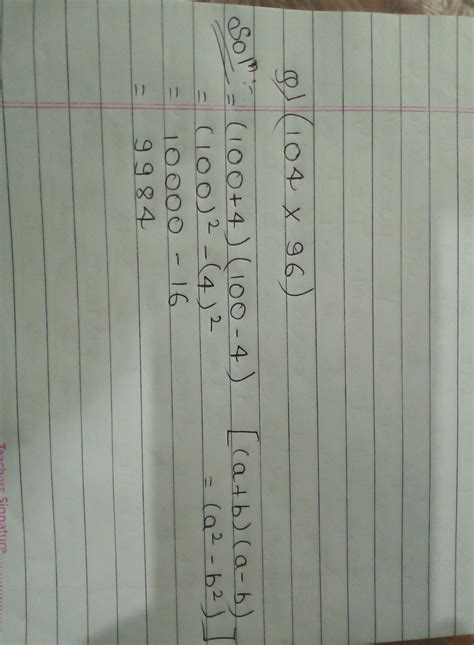 Q) (104 × 96)
Solⁿ:- = (100+4) (100-4) [(a+b) (a-b)
= (100)² - (4)² = (a² - b²)]
= 10000 - 16
= 9984
Teachers Signature..............